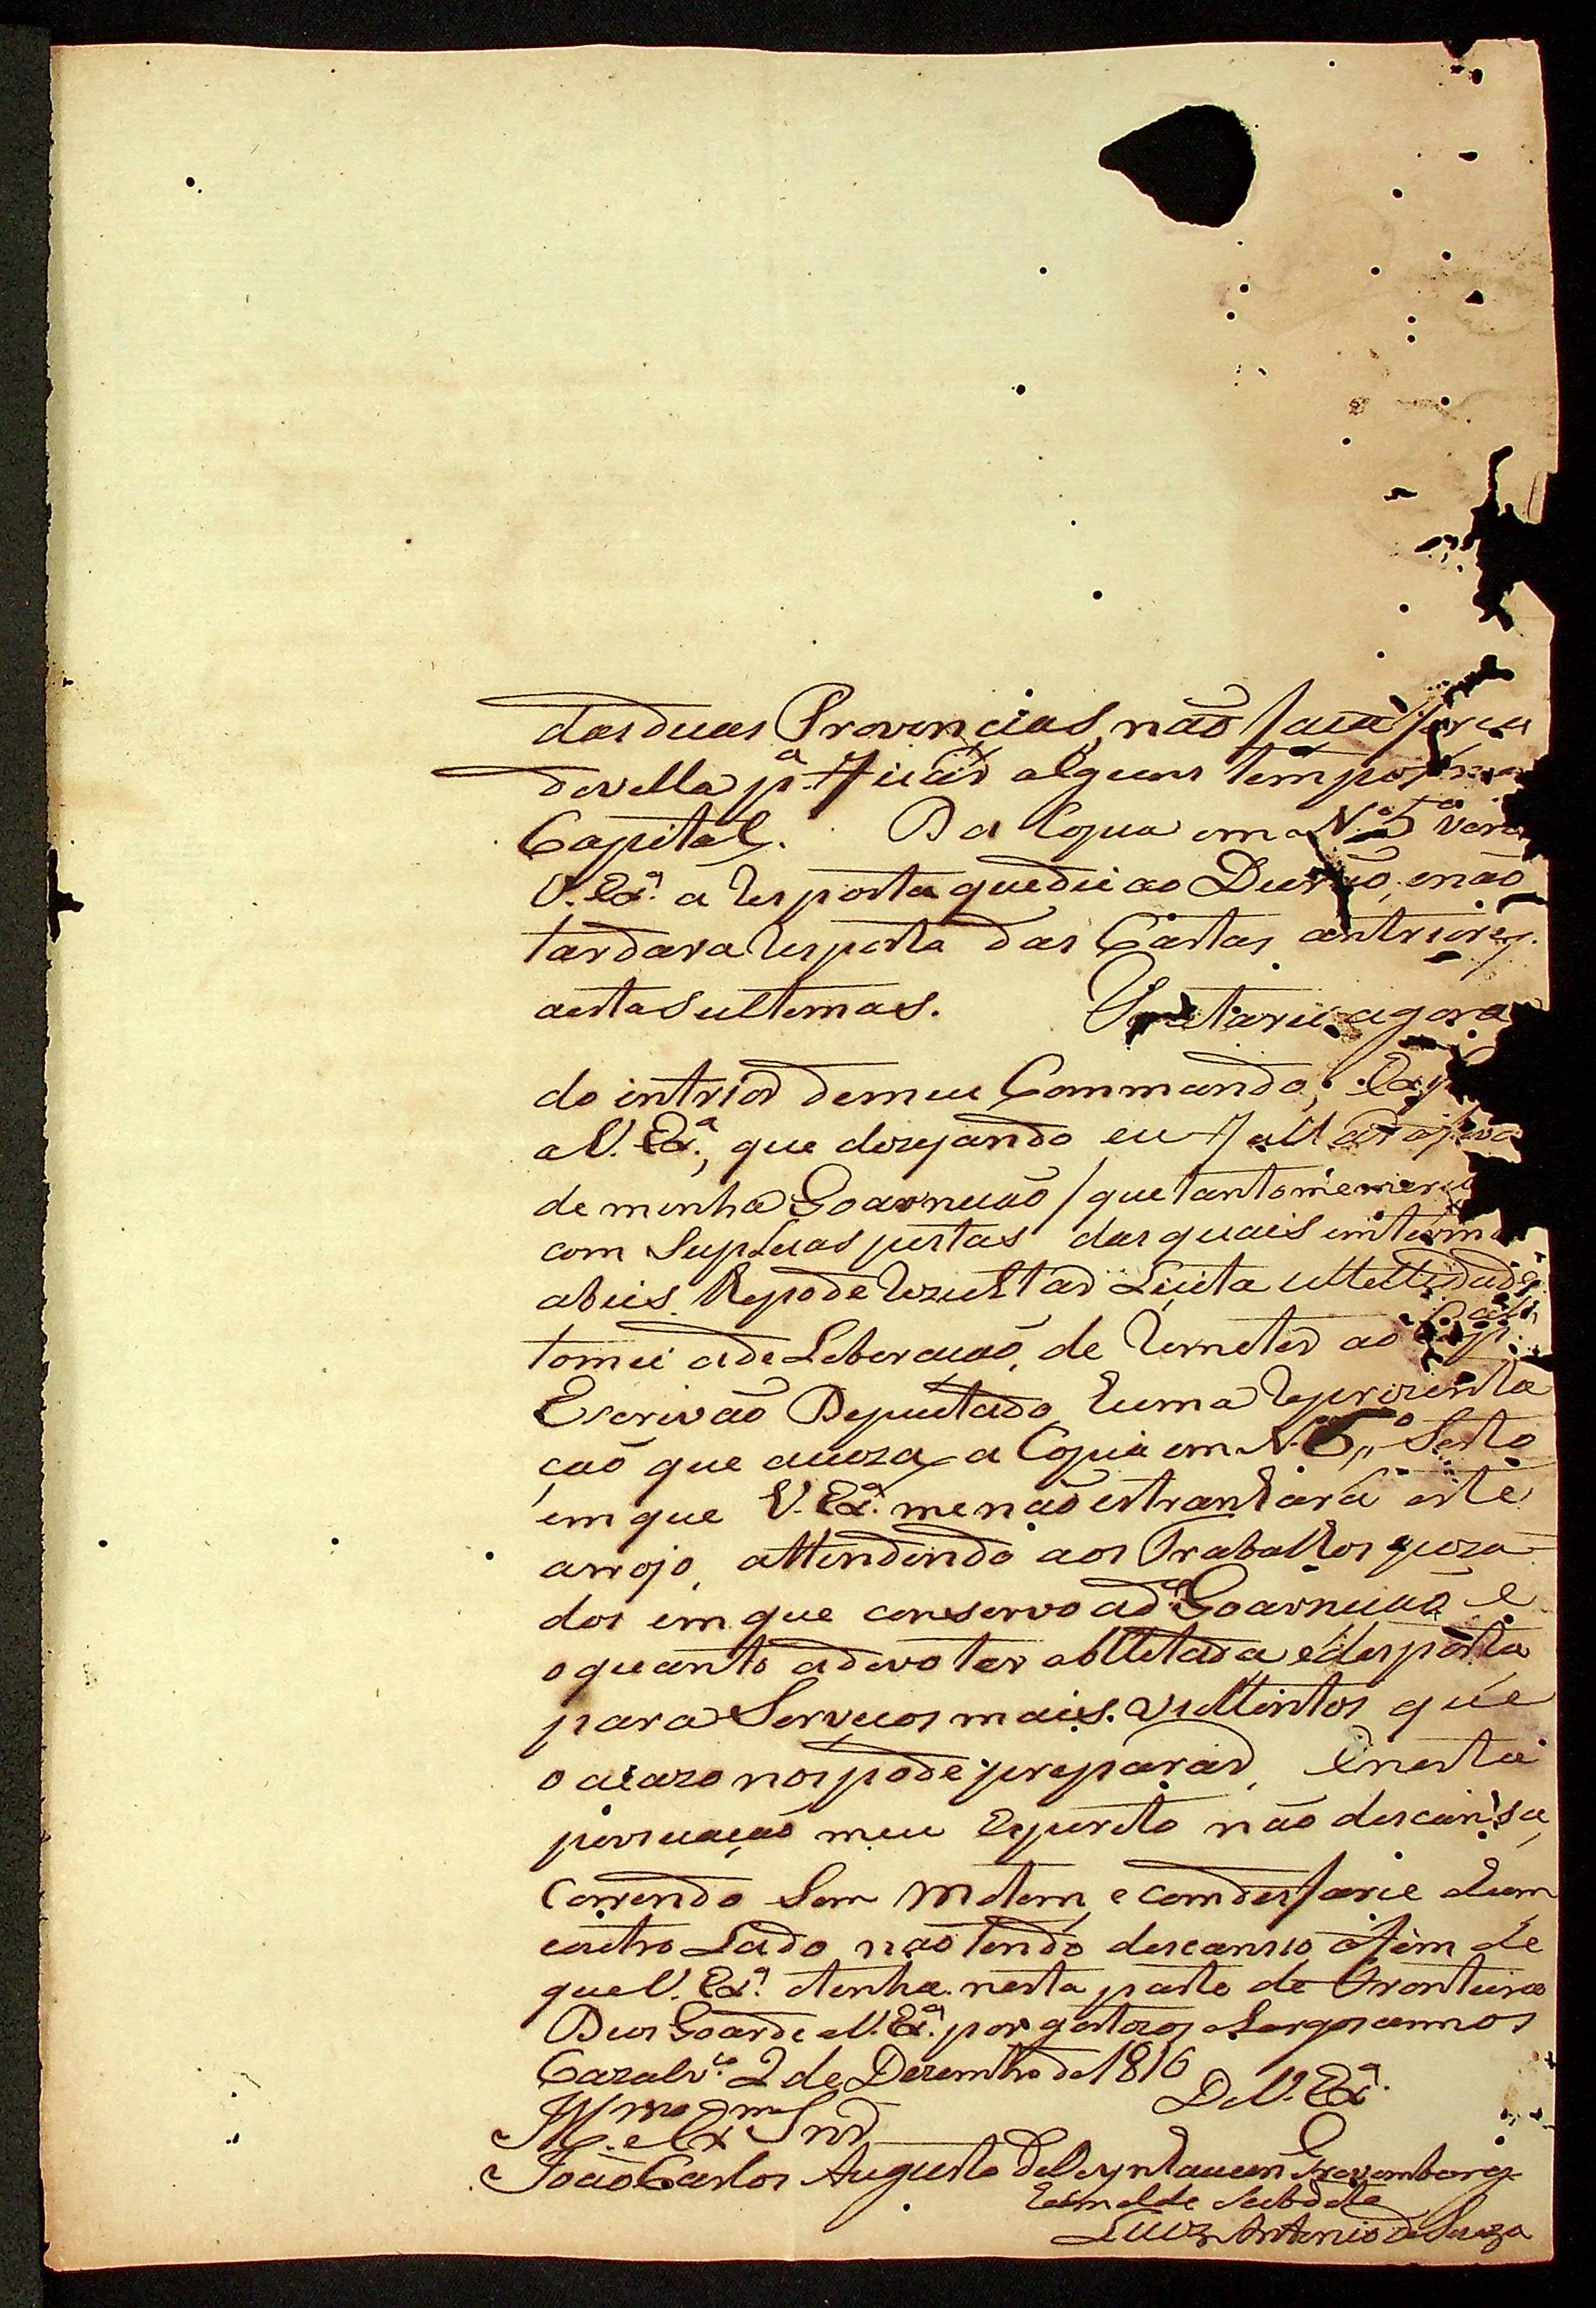 das duas Provincias, não
devella pª ficar alguns tempos
Capital. Da Copia em Nº 5º verá
V. Exª a resposta que dei ao Durão, enão
tardara resposta das Cartas antriores
aestas ultimas. agora
do intrior demeu Commando,
aV. Exª, que dezejando eu
de minha Goarnição / que tanto me merece
com Suplicas justas das quais
Repode rezultar Licita utellidade
tomei adeLiberação, de remeter ao
Escrivão Deputado huma reprizenta
ção que acuza a Copia em Nº 6,, Serto
em que V. Exª me não estranhará este
arrojo, attendendo aos Trabalhos peza
dos em que conservo adª Goarnição e
oquanto adevo ter abellitada edesposta
para Serviços mais violentos que
oacazo nospode preparar, enesta
persuação meu Espirito não descança,
Correndo Sem metem, ecomdesfarce ahum
eoutro Lado, não tendo descanso afim de
queV. Exª atenha nesta parte de Fronteira
Deos Goarde aV. Exª por gostozos eLargos annos
Cazalvº 2 de Dezembro de 1816
De V. Exª
Illmo e Exmo Snr
João Carlos Augusto de Oeynhausen Gravemberg
Humelde Subdito
Luiz Antonio de Souza